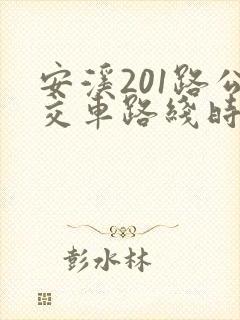 安溪201路公
交车路线时
彭水林